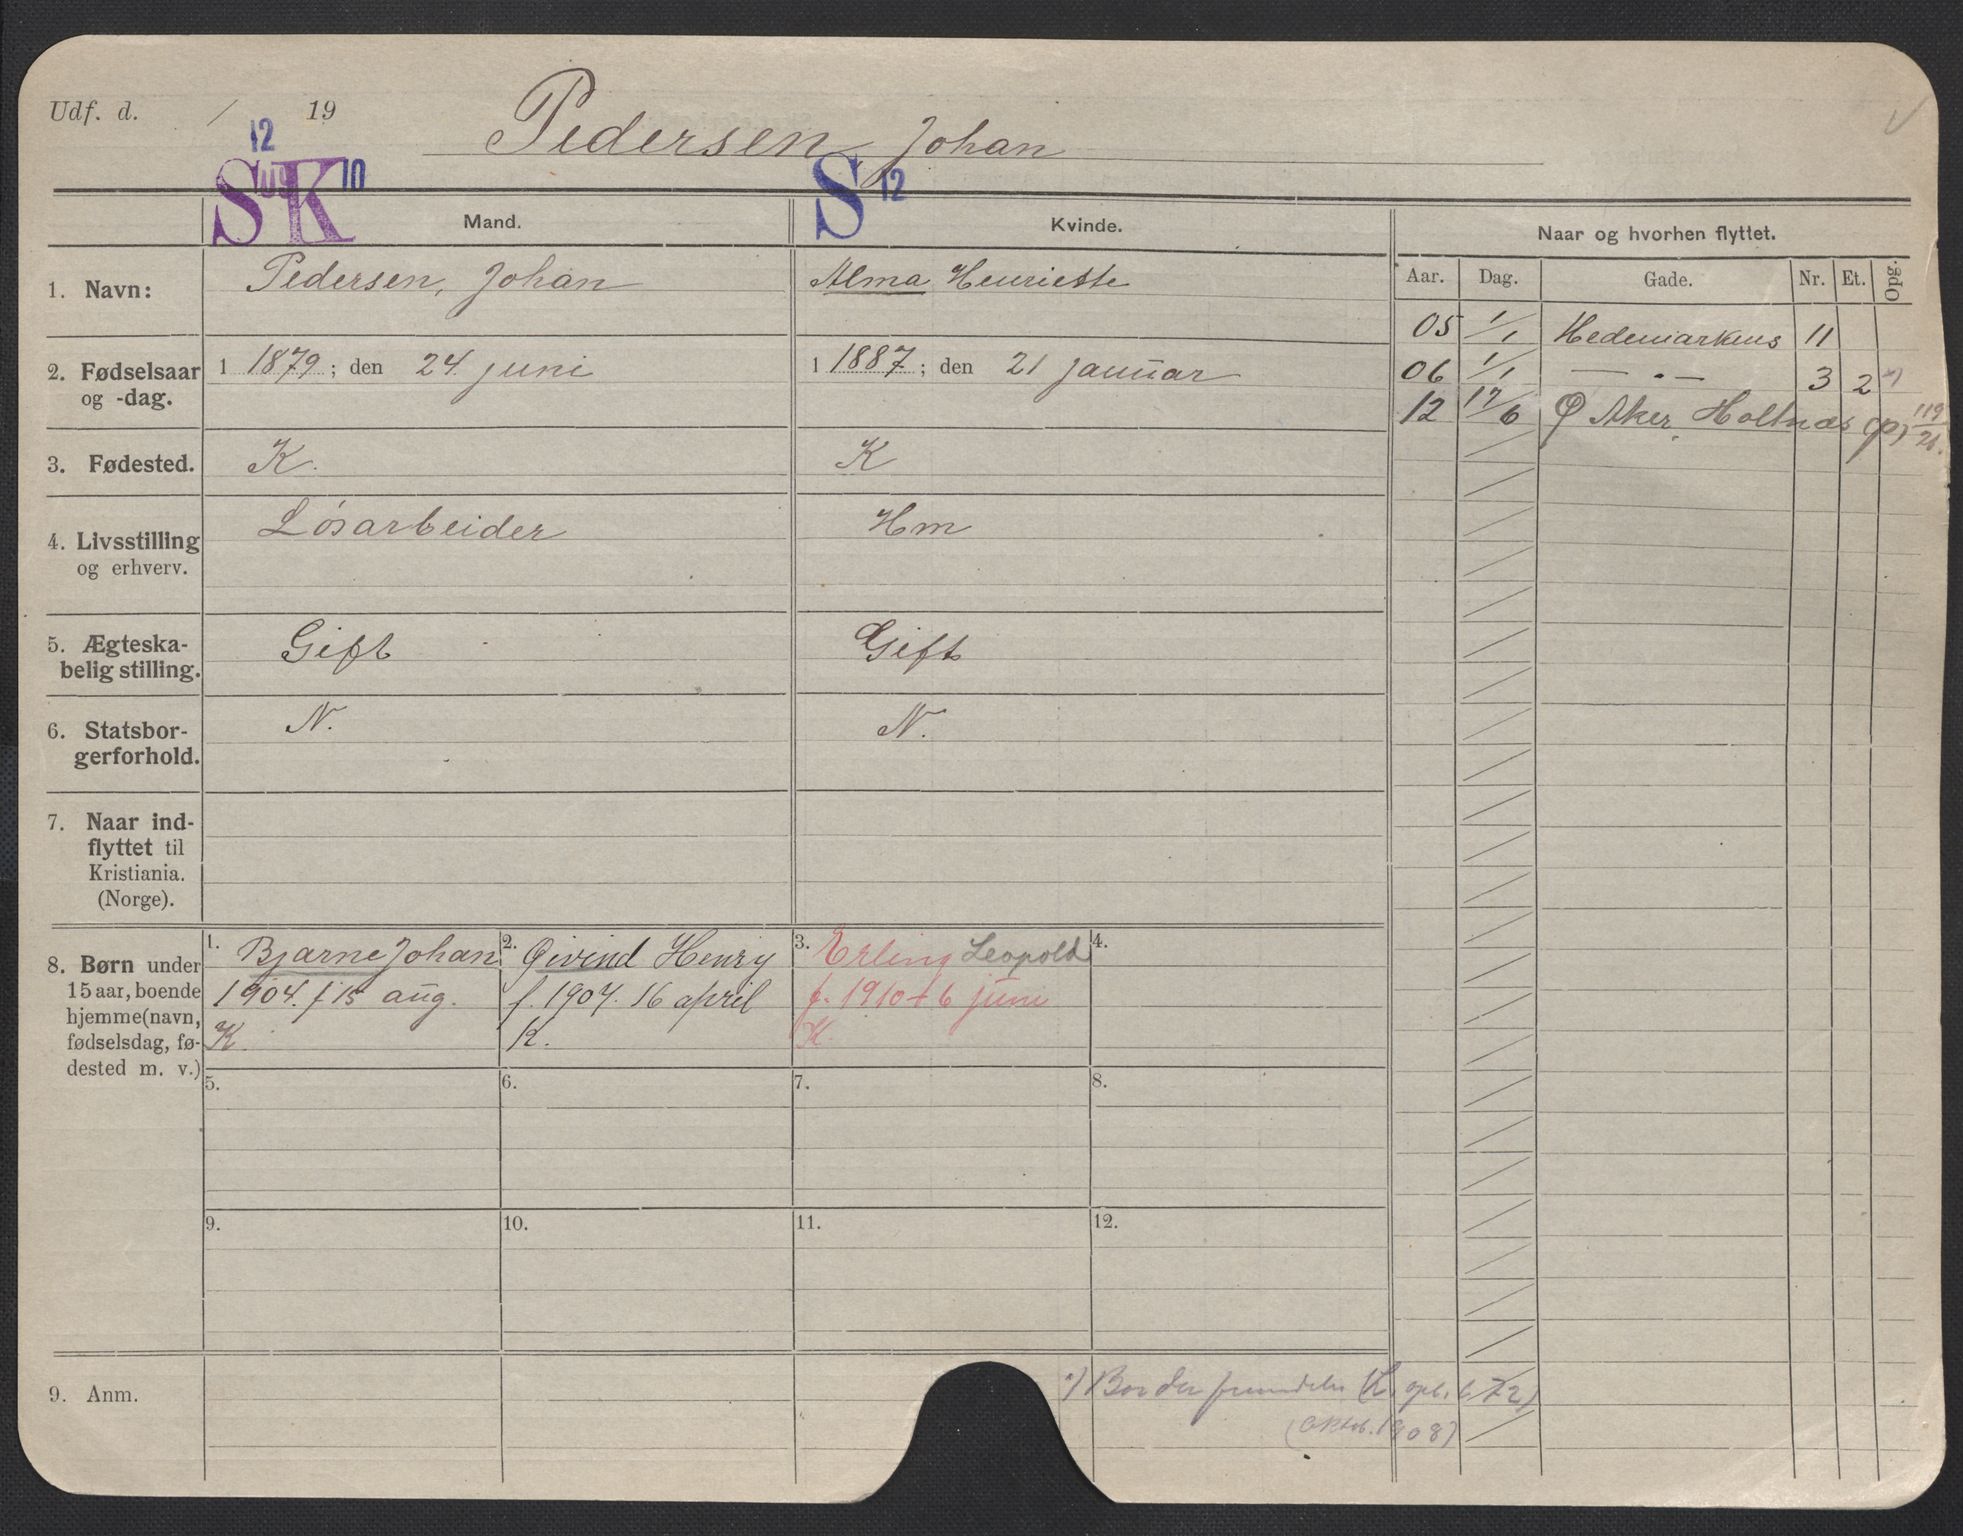 Udf. d. / 19
Pedersen, Johan
12
S K 10
S 12
Mand.
Kvinde.
Naar og hvorhen flyttet.
Aar. Dag. Gade. Nr. Et. Opg.
1. Navn:
Pedersen, Johan
Alma Henriette
2. Fødselsaar
og -dag.
1 1879; den 24. juni
1 1887; den 21 januar
3. Fødested.
K.
K
4. Livsstilling
og erhverv.
Løsarbeider
Hm
5. Ægteska-
belig stilling.
Gift
Gift
6. Statsbor-
gerforhold.
N.
N.
7. Naar ind-
flyttet til
Kristiania.
(Norge).
05 1/1 Hedemarkens 11
06 1/1 — . — 3 2 *)
12 17/6 Ø Aker, Holtnæs (p) 119/26.
8. Børn under
15 aar, boende
hjemme (navn,
fødselsdag, fø-
dested m. v.)
1. Bjarne Johan
1904. f 15 aug.
K.
2. Øivind Henry
f. 1907. 16 april
K.
3. Erling Leopold
f. 1910 + 6 juni
K.
4.
5.
6.
7.
8.
9.
10.
11.
12.
9. Anm.
*) Bor der fremdeles (L. opl. b. 72)
(oktob. 1908)